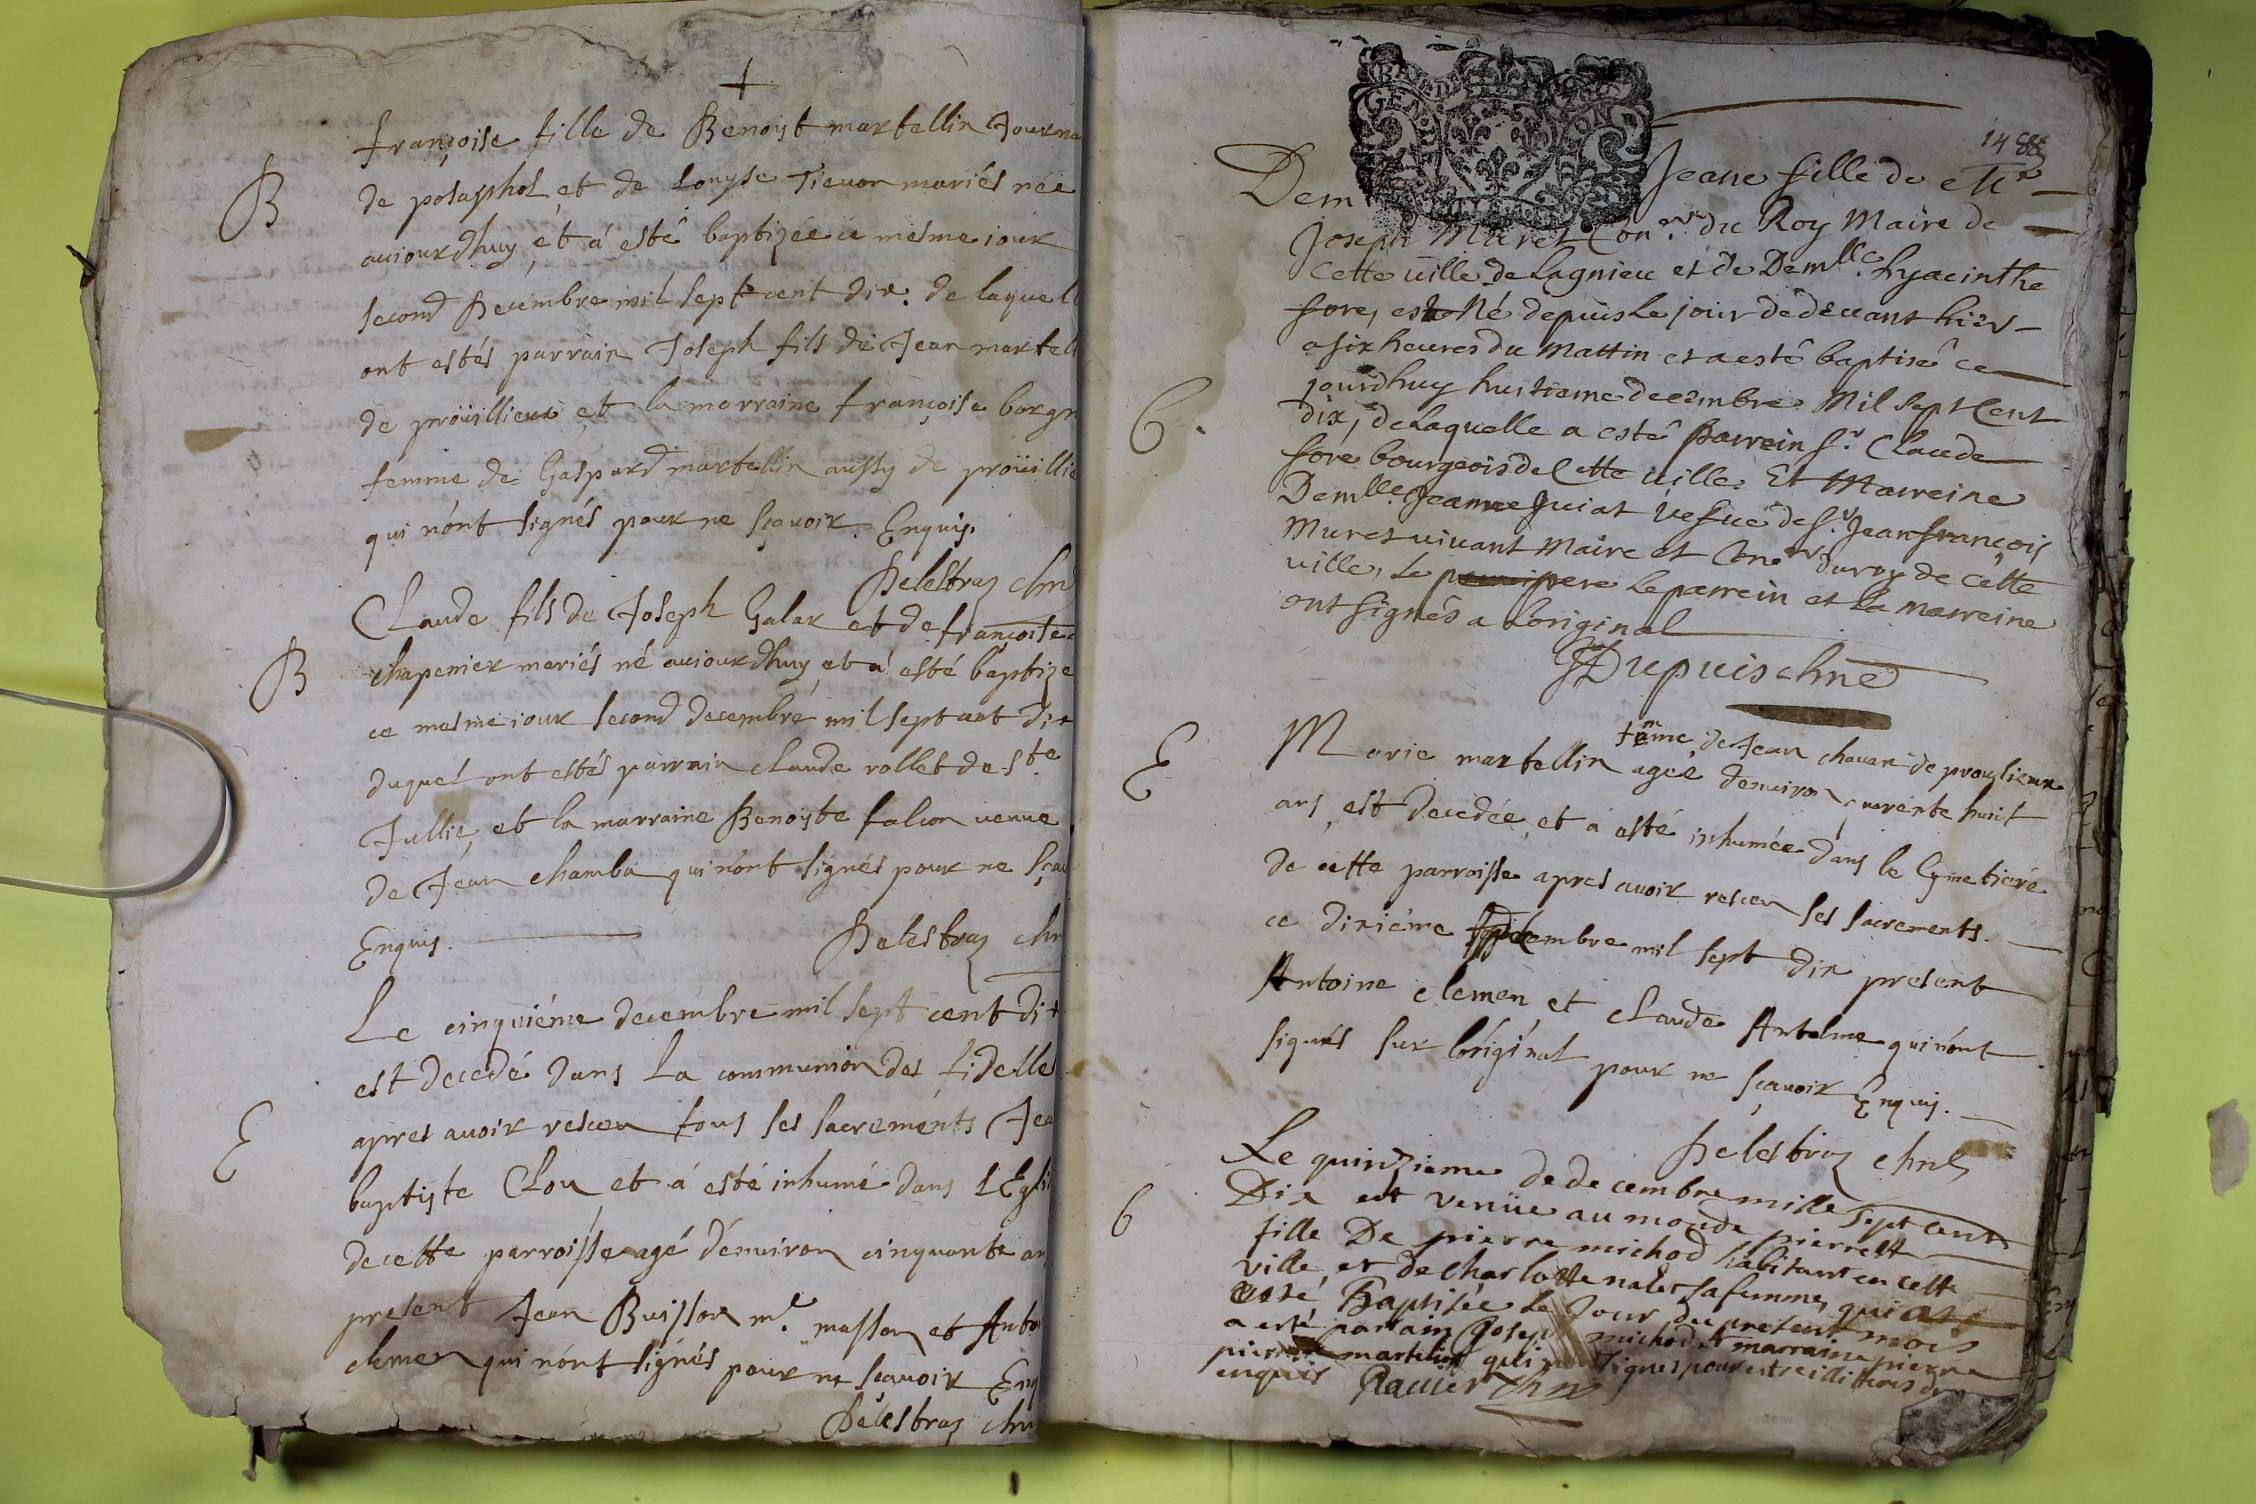 françoise fille de Benoist martellin Journa
B
de posaphol et de Louyse Tieuon mariés née
auiourdhuy et á esté baptizée ce mesme iour
second Decembre mil sept cent dix. de laquell
ont estés parrain Joseph fils de Jean martel
de proüillieux et la marraine françoise borgn
femme de Gaspard martellin aussy de proüillie
qui n'ont signés pour ne sçauoir. Enquis.
Delestraz chn
Claude fils de Joseph Galar et de françoise
B
chapenier mariés né auiourdhuy et á esté baptize
ce mesme iour second decembre mil sept cent dix
duquel ont estés parrain claude rollet de Ste
Jullie, et la marraine Benoiste falcon veuue
de Jean chamba qui n'ont signés pour ne sçau
Enquis.
Delestraz chn
Le cinquiéme decembre mil sept cent dix
est decedé dans La communion des fidelle
E
apres auoir resceu tous ses sacreménts Jea
baptiste Clou et á esté inhumé dans l'Egli
de cette parroisse agé d'enuiron cinquante an
present Jean Buisson me. masson et Anto
clemen qui n'ont signés pour ne sçauoir Enq
Delestraz chn
1488
Dem Jeane fille de Mr
Joseph Muret Conr. du Roy Maire de
cette uille de Lagnieu et de Demlle. hyacinthe
fore, est Né depuis Le jour de deuant hier
a six heures du Mattin et a esté baptisé ce
6
jourdhuy huitieme decembre Mil sept Cent
dix, de Laquelle a esté parrein Sr. Claude
fore bourgeois de Cette uille. Et Marreine
Demlle. Jeanne Guiat Vefue de Sr. Jean françois
Muret uiuant Maire et Conr. du roy de Cette
ville, Le pere Le parrein et La marreine
ont signés a Loriginal
Dupuis chne
feme de Jean chauan de prouilieux
E
Marie martellin ageé denuiron quarente huit
ans, est decedée, et á esté inhumée dans le Cymetiere
de cette parroisse apres auoir resceu ses sacrements.
ce dixiéme decembre mil sept dix present
Antoine clemen et claude Antelme qui n'ont
signés sur loriginal pour ne sçauoir Enquis.
Delestraz chne
6
Le quinzieme de decembre mille sept cents
Dix est venüe au monde pierrette
fille De pierre michod habitant en cette
ville, et de charlotte nalet sa femme, qui a
esté Baptisée Le Jour du present mois
a esté parrain Joseph michod et marraine pierre
martelin qui signes pour estre illiteres de
enquis Rauier chne